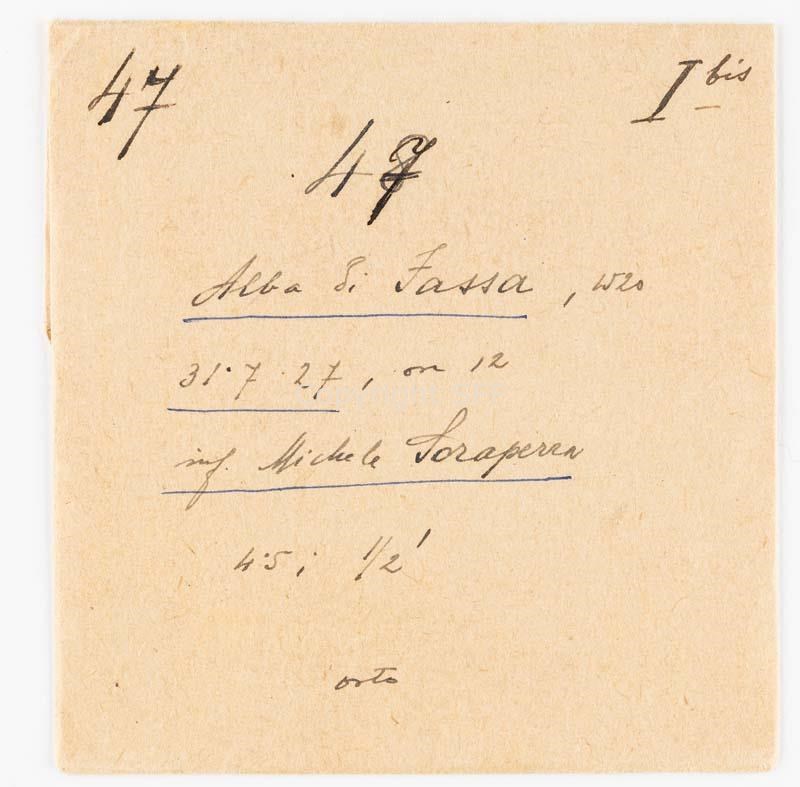 47
I bis
47
Alba di Fassa, 1520
31·7 27, ore 12
inf. Michele Soraperra
4·5; 1/2'
orto